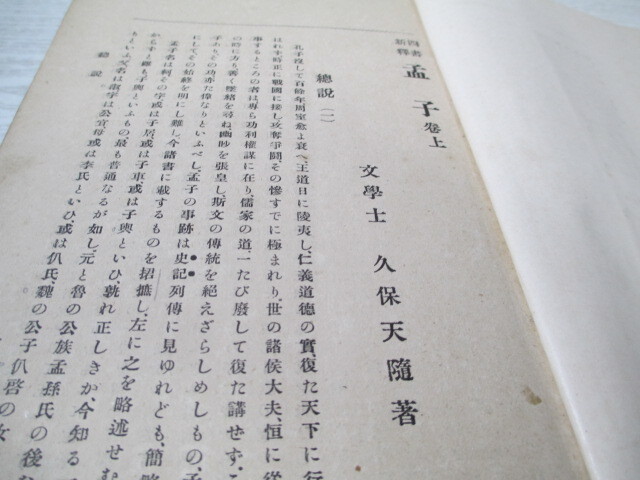 四書
新釋
孟子卷上
文學士 久保天隨著
總說(一)
孔子歿して百餘年周室愈よ衰へ、王道日に陵夷し、仁義道德の實、復た天下に行
はれず、時正に戰國に接し、攻奪爭鬪、その慘すでに極まれり、世の諸侯大夫、恒に從
事するところの者は專ら功利權謀に在り、儒家の道、一たび廢して復た講せず、こ
の時に方も善く墜緖を尋ね幽眇を張皇し、斯文の傳統を絕えざらしめしもの、子
子ありその功亦た偉なりといふべし、孟子の事跡は史記列傳に見ゆれども、簡略
にしてその始終を明にし難し、今諸書に載するものを招摭し、左に之を略述せむ
孟子名は軻その字或は子居、或は子車、或は子輿といひ、孰れ正しきか、今知る
からず、雖も子輿といふもの最も普通なるが如し、元と魯の公族孟孫氏の後な
もといふ父名は激、字は公宜、母或は李氏といひ、或は仉氏、魏の公子仉啓の女
總說